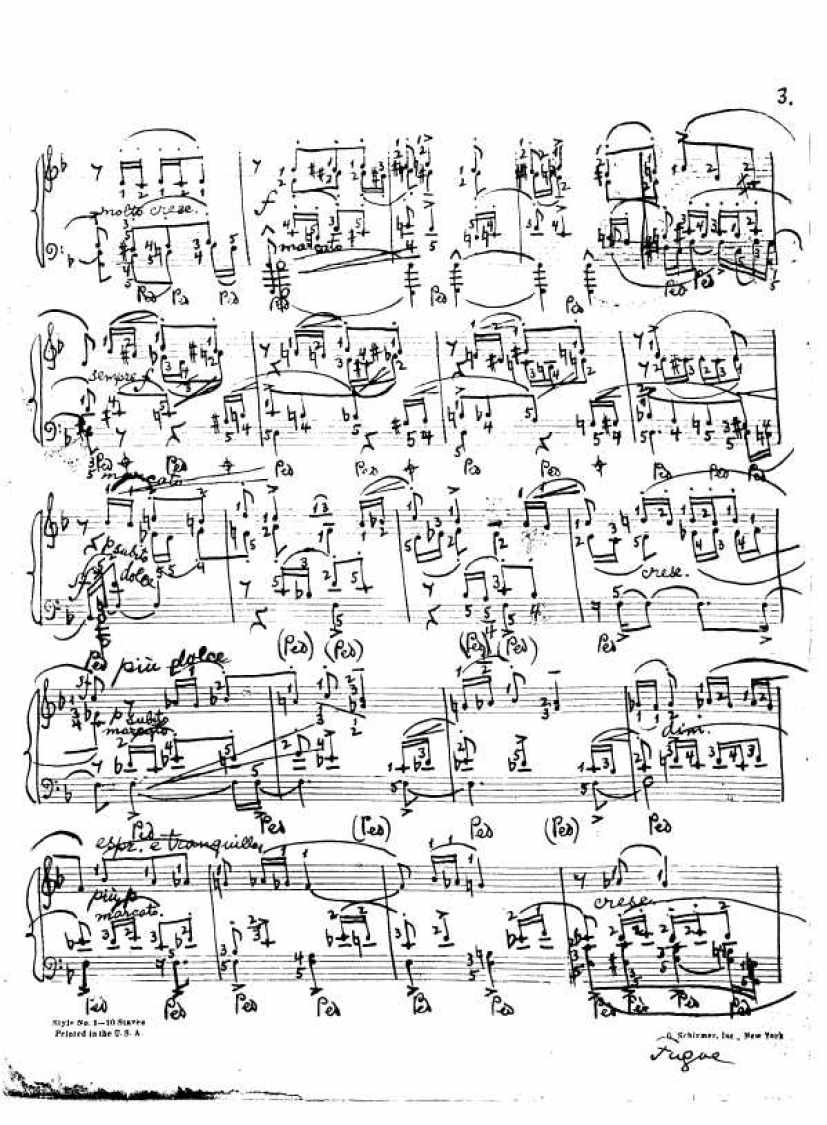 3.
molto cresc.
f
marcato
Ped Ped Ped Ped Ped Ped Ped Ped
sempre f
Ped Ped Ped Ped Ped Ped Ped
marcato
p subito
dolce
cresc.
Ped (Ped) (Ped) (Ped) (Ped) Ped
più dolce
p subito
marcato
dim.
Ped Ped (Ped) Ped (Ped) Ped
espr. e tranquillo
più p
marcato.
cresc.
Ped Ped Ped Ped Ped Ped Ped Ped Ped Ped
Style No. 1—10 Staves
Printed in the U. S. A
G. Schirmer, Inc., New York
Fugue